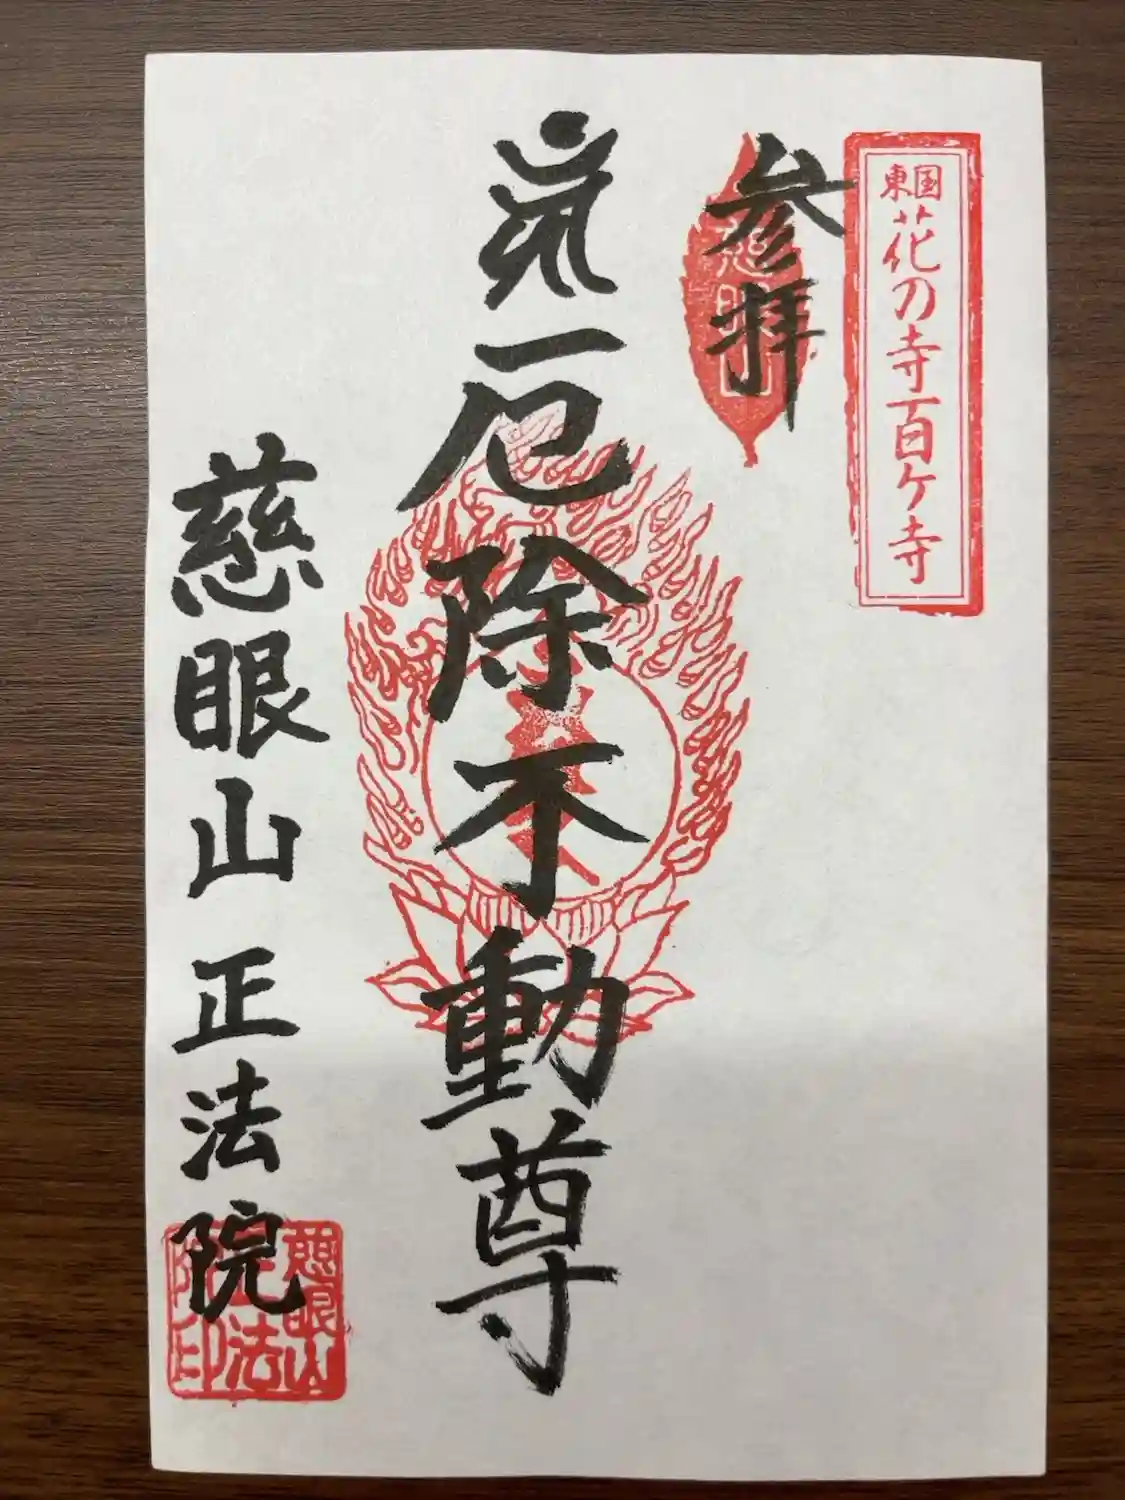 東国
花の寺百ケ寺
参拝
厄除不動尊
慈眼山 正法院
慈眼山
正法
院印